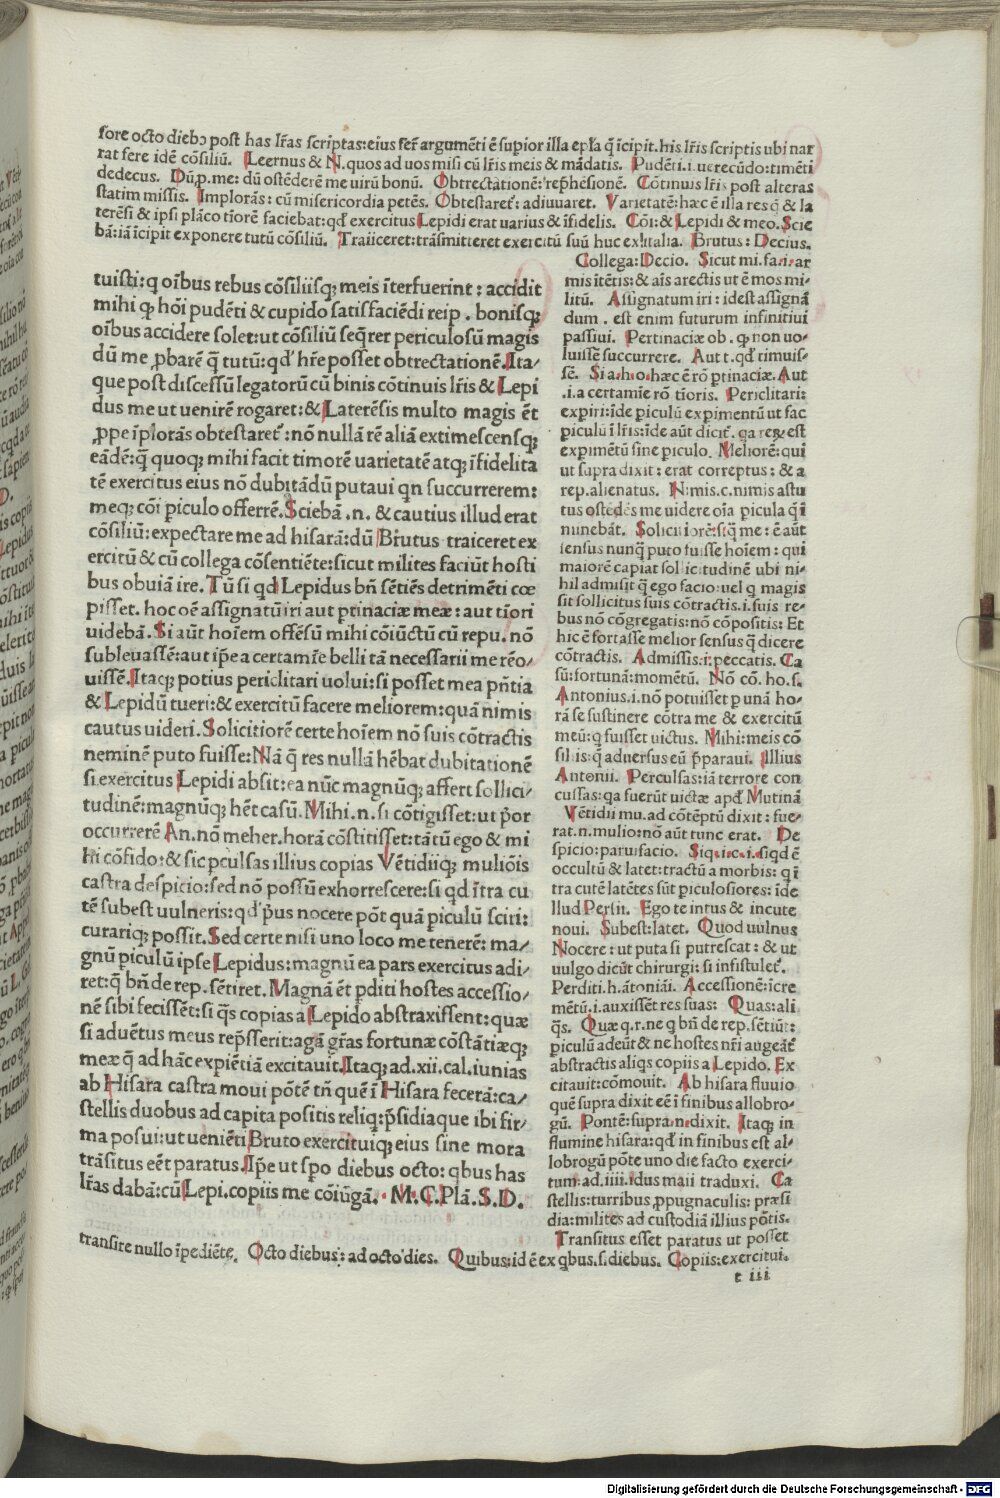 fore octo diebꝰ post has lr̃as scriptas:eius fer̃ argumẽti ẽ supior illa epl̃a q̃ ĩcipit.his lr̃is scriptis ubi nar
rat fere idẽ cõsiliũ. Leernus & N.quos ad uos misi cũ lr̃is meis & mãdatis. Pudẽti.i.uerecũdo:timẽti
dedecus. Dũ.ꝓ.me: dũ ostẽderẽ me uirũ bonũ. Obtrectationẽ:rep̃hẽsionẽ. Cõtinuis lr̃is post alteras
statim missis. Implorãs: cũ misericordia petẽs. Obtestaret̃: adiuuaret. Varietatẽ:hæc ẽ illa res q̃ & la
terẽsi & ipsi plãco tĩorẽ faciebat:qđ exercitus Lepidi erat uarius & ĩfidelis. Cõi:& Lepidi & meo. Scie
bã:iã ĩcipit exponere tutũ cõsiliũ. Traiiceret:trãsmitteret exercitũ suũ huc ex Italia. Brutus: Decius.
tuisti:q oĩbus rebus cõsiliisqꝫ meis ĩterfuerint: accidit
mihi ꝙ hõi pudẽti & cupido satisfaciẽdi reip. bonisqꝫ
oĩbus accidere solet:ut cõsiliũ seq̃rer periculosũ magis
dũ me ꝓbarẽ q̃ tutũ:qđ hr̃e posset obtrectationẽ.Ita/
que post discessũ legatorũ cũ binis cõtinuis lr̃is & Lepi
dus me ut uenirẽ rogaret:& Laterẽsis multo magis ẽt
ꝓpe ĩplorãs obtestaret̃:nõ nullã rẽ aliã extimescensqꝫ
eãdẽ:q̃ quoqꝫ mihi facit timorẽ uarietatẽ atqꝫ ĩfidelita
tẽ exercitus eius nõ dubitãdũ putaui qn succurrerem:
meqꝫ cõi piculo offerrẽ.Sciebã.n. & cautius illud erat
cõsiliũ:expectare me ad hisarã:dũ Brutus traiceret ex
ercitũ & cũ collega cõsentiẽte:sicut milites faciũt hosti
bus obuiã ire. Tũ si qđ Lepidus bñ sẽtiẽs detrimẽti cœ
pisset. hoc oẽ assignatũ iri aut ptinaciæ meæ: aut tĩori
uidebã.Si aũt hoĩem offẽsũ mihi cõiũctũ cũ repu. nõ
subleuassẽ:aut ip̃e a certamĩe belli tã necessarii me reõ/
uissẽ.Itaqꝫ potius periclitari uolui:si posset mea p̃ñtia
& Lepidũ tueri:& exercitũ facere meliorem:quã nimis
cautus uideri. Solicitiorẽ certe hoĩem nõ suis cõtractis
neminẽ puto fuisse:Nã q̃ res nullã hẽbat dubitationẽ
si exercitus Lepidi absit:ea nũc magnũqꝫ affert sollici/
tudinẽ:magnũqꝫ hẽt casũ. Mihi.n.si cõtigisset:ut p̃or
occurrerẽ An.nõ meher.horã cõstitisset:tãtũ ego & mi
hi cõfido:& sic pculsas illius copias Vẽtidiiqꝫ muliõis
castra despicio:sed nõ possũ exhorrescere:si qđ ĩtra cu
tẽ subest uulneris:qđ p̃us nocere põt quã piculũ sciri:
curariqꝫ possit.Sed certe nisi uno loco me tenerẽ: ma/
gnũ piculũ ipse Lepidus:magnũ ea pars exercitus adi/
ret:q̃ bñ de rep.sẽtiret. Magnã ẽt pditi hostes accessio/
nẽ sibi fecissẽt:si q̃s copias a Lepido abstraxissent:quæ
si aduẽtus meus rep̃sserit:agã gr̃as fortunæ cõstãtiæqꝫ
meæ q̃ ad hãc expiẽtiã excitauit.Itaqꝫ ad.xii.cal.iunias
ab Hisara castra moui põtẽ tñ quẽ ĩ Hisara fecerã:ca/
stellis duobus ad capita positis reliq:p̃sidiaque ibi fir/
ma posui:ut ueniẽti Bruto exercituiqꝫ eius sine mora
trãsitus eẽt paratus.Ip̃e ut spo diebus octo: qbus has
lr̃as dabã:cũ Lepi.copiis me cõiũgã. M.C.Plã.S.D.
Collega:Decio. Sicut mi.fa:i:ar
mis ĩtẽtis:& aĩs arectis ut ẽ mos mi-
litũ. Assignatum iri: idest assignã
dum. est enim futurum infinitiui
passiui. Pertinaciæ ob. ꝙ non uo-
luissẽ succurrere. Aut t.qđ timuis-
sẽ. Si.a.h.o.hæc ẽ rõ ptinaciæ. Aut
.i.a certamĩe rõ tĩoris. Periclitari:
expiri:ĩde piculũ expimentũ ut fac
piculũ ĩ lr̃is:ĩde aũt dicit̃.qa reꝝ est
expimẽtũ sine piculo. Meliorẽ:qui
ut supra dixit: erat correptus: & a
rep.alienatus. N:mis.c.nimis astu
tus ostẽdẽs me uidere oĩa picula q̃ ĩ
minebãt. Soliciiorẽ:siq̃ me: ẽ aũt
sensus nunq̃ puto fuisse hoĩem: qui
maiorẽ capiat sollicitudinẽ ubi ni-
hil admisit q̃ ego facio:uel q̃ magis
sit sollicitus suis cõtractis.i.suis re-
bus nõ cõgregatis:nõ cõpositis: Et
hic ẽ fortasse melior sensus q̃ dicere
cõtractis. Admissis.i:peccatis. Ca
sũ:fortunã:momẽtũ. Nõ cõ.ho.s.
Antonius.i.nõ potuisset p unã ho-
rã se sustinere cõtra me & exercitũ
meũ:q fuisset uictus. Mihi:meis cõ
siliis:q̃ aduersus eũ p̃paraui. Illius
Antonii. Perculsas:iã terrore con
cussas:qa fuerũt uictæ apđ Mutinã
Vẽtidii mu.ad cõtẽptũ dixit: fue-
rat.n.mulio:nõ aũt tunc erat. De
spicio:parui facio. Siq.i.c.i.siqđ ẽ
occultũ & latet:tractũ a morbis: q ĩ
tra cutẽ latẽtes sũt piculosiores:ĩde
llud Persit. Ego te intus & incute
noui. Subest:latet. Quod uulnus
Nocere: ut puta si putrescat: & ut
uulgo dicũt chirurgi: si infistulet̃.
Perditi.h.ãtoniãi. Accessionẽ:icre
mẽtũ.i.auxissẽt res suas: Quas:ali
q̃s. Quæ q.r.ne q bñ de rep.sẽtiũt:
piculũ adeũt & ne hostes nr̃i augeãt̃
abstractis aliqs copiis a Lepido. Ex
citauit:cõmouit. Ab hisara fluuio
quẽ supra dixit eẽ ĩ finibus allobro-
gũ. Pontẽ:supra.n.dixit. Itaqꝫ in
flumine hisara:qđ in finibus est al-
lobrogũ põte uno die facto exerci-
tum:ad.iiii.idus maii traduxi. Ca
stellis:turribus ꝓpugnaculis: præsi
dia:milites ad custodiã illius põtis.
Transitus esset paratus ut posset
transire nullo ĩpediẽte. Octo diebus: ad octo dies. Quibus:id ẽ ex qbus.s.diebus. Copiis:exercitui.
t iii
Digitalisierung gefördert durch die Deutsche Forschungsgemeinschaft - DFG